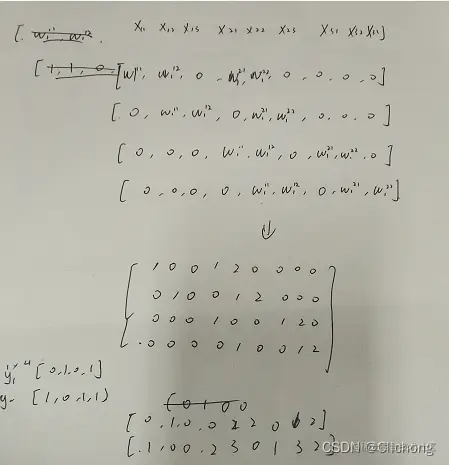 X₁₁ X₁₂ X₁₃ X₂₁ X₂₂ X₂₃ X₃₁ X₃₂ X₃₃]
[w₁¹¹, w₁¹², 0, w₁²¹, w₁²², 0, 0, 0, 0]
[0, w₁¹¹, w₁¹², 0, w₁²¹, w₁²², 0, 0, 0]
[0, 0, 0, w₁¹¹, w₁¹², 0, w₁²¹, w₁²², 0]
[0, 0, 0, 0, w₁¹¹, w₁¹², 0, w₁²¹, w₁²²]
⇓
[1 0 0 1 2 0 0 0 0
0 1 0 0 1 2 0 0 0
0 0 0 1 0 0 1 2 0
0 0 0 0 1 0 0 1 2]
[0, 1, 0, 1]
y- [1, 0, 1, 1)
[0, 1, 0, 0 2 0 2]
[1, 0 0, 2 3 0 1 3 2]
CSDN @Clichong